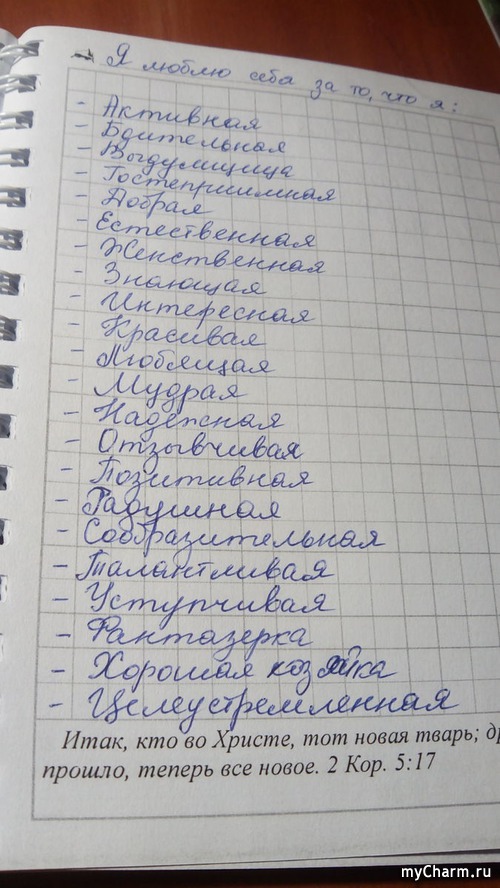 Я люблю себя за то, что я:
- Активная
- Бдительная
- Выдумщица
- Гостеприимная
- Добрая
- Естественная
- Женственная
- Знающая
- Интересная
- Красивая
- Любящая
- Мудрая
- Надежная
- Отзывчивая
- Позитивная
- Радушная
- Сообразительная
- Талантливая
- Уступчивая
- Фантазерка
- Хорошая хозяйка
- Целеустремленная
Итак, кто во Христе, тот новая тварь; др
прошло, теперь все новое. 2 Кор. 5:17
myCharm.ru